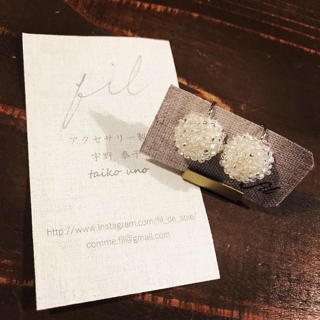 fil
アクセサリー製
宇野 泰子
taiko uno
http://www.instagram.com/fil_de_soie/
comme.fil@gmail.com